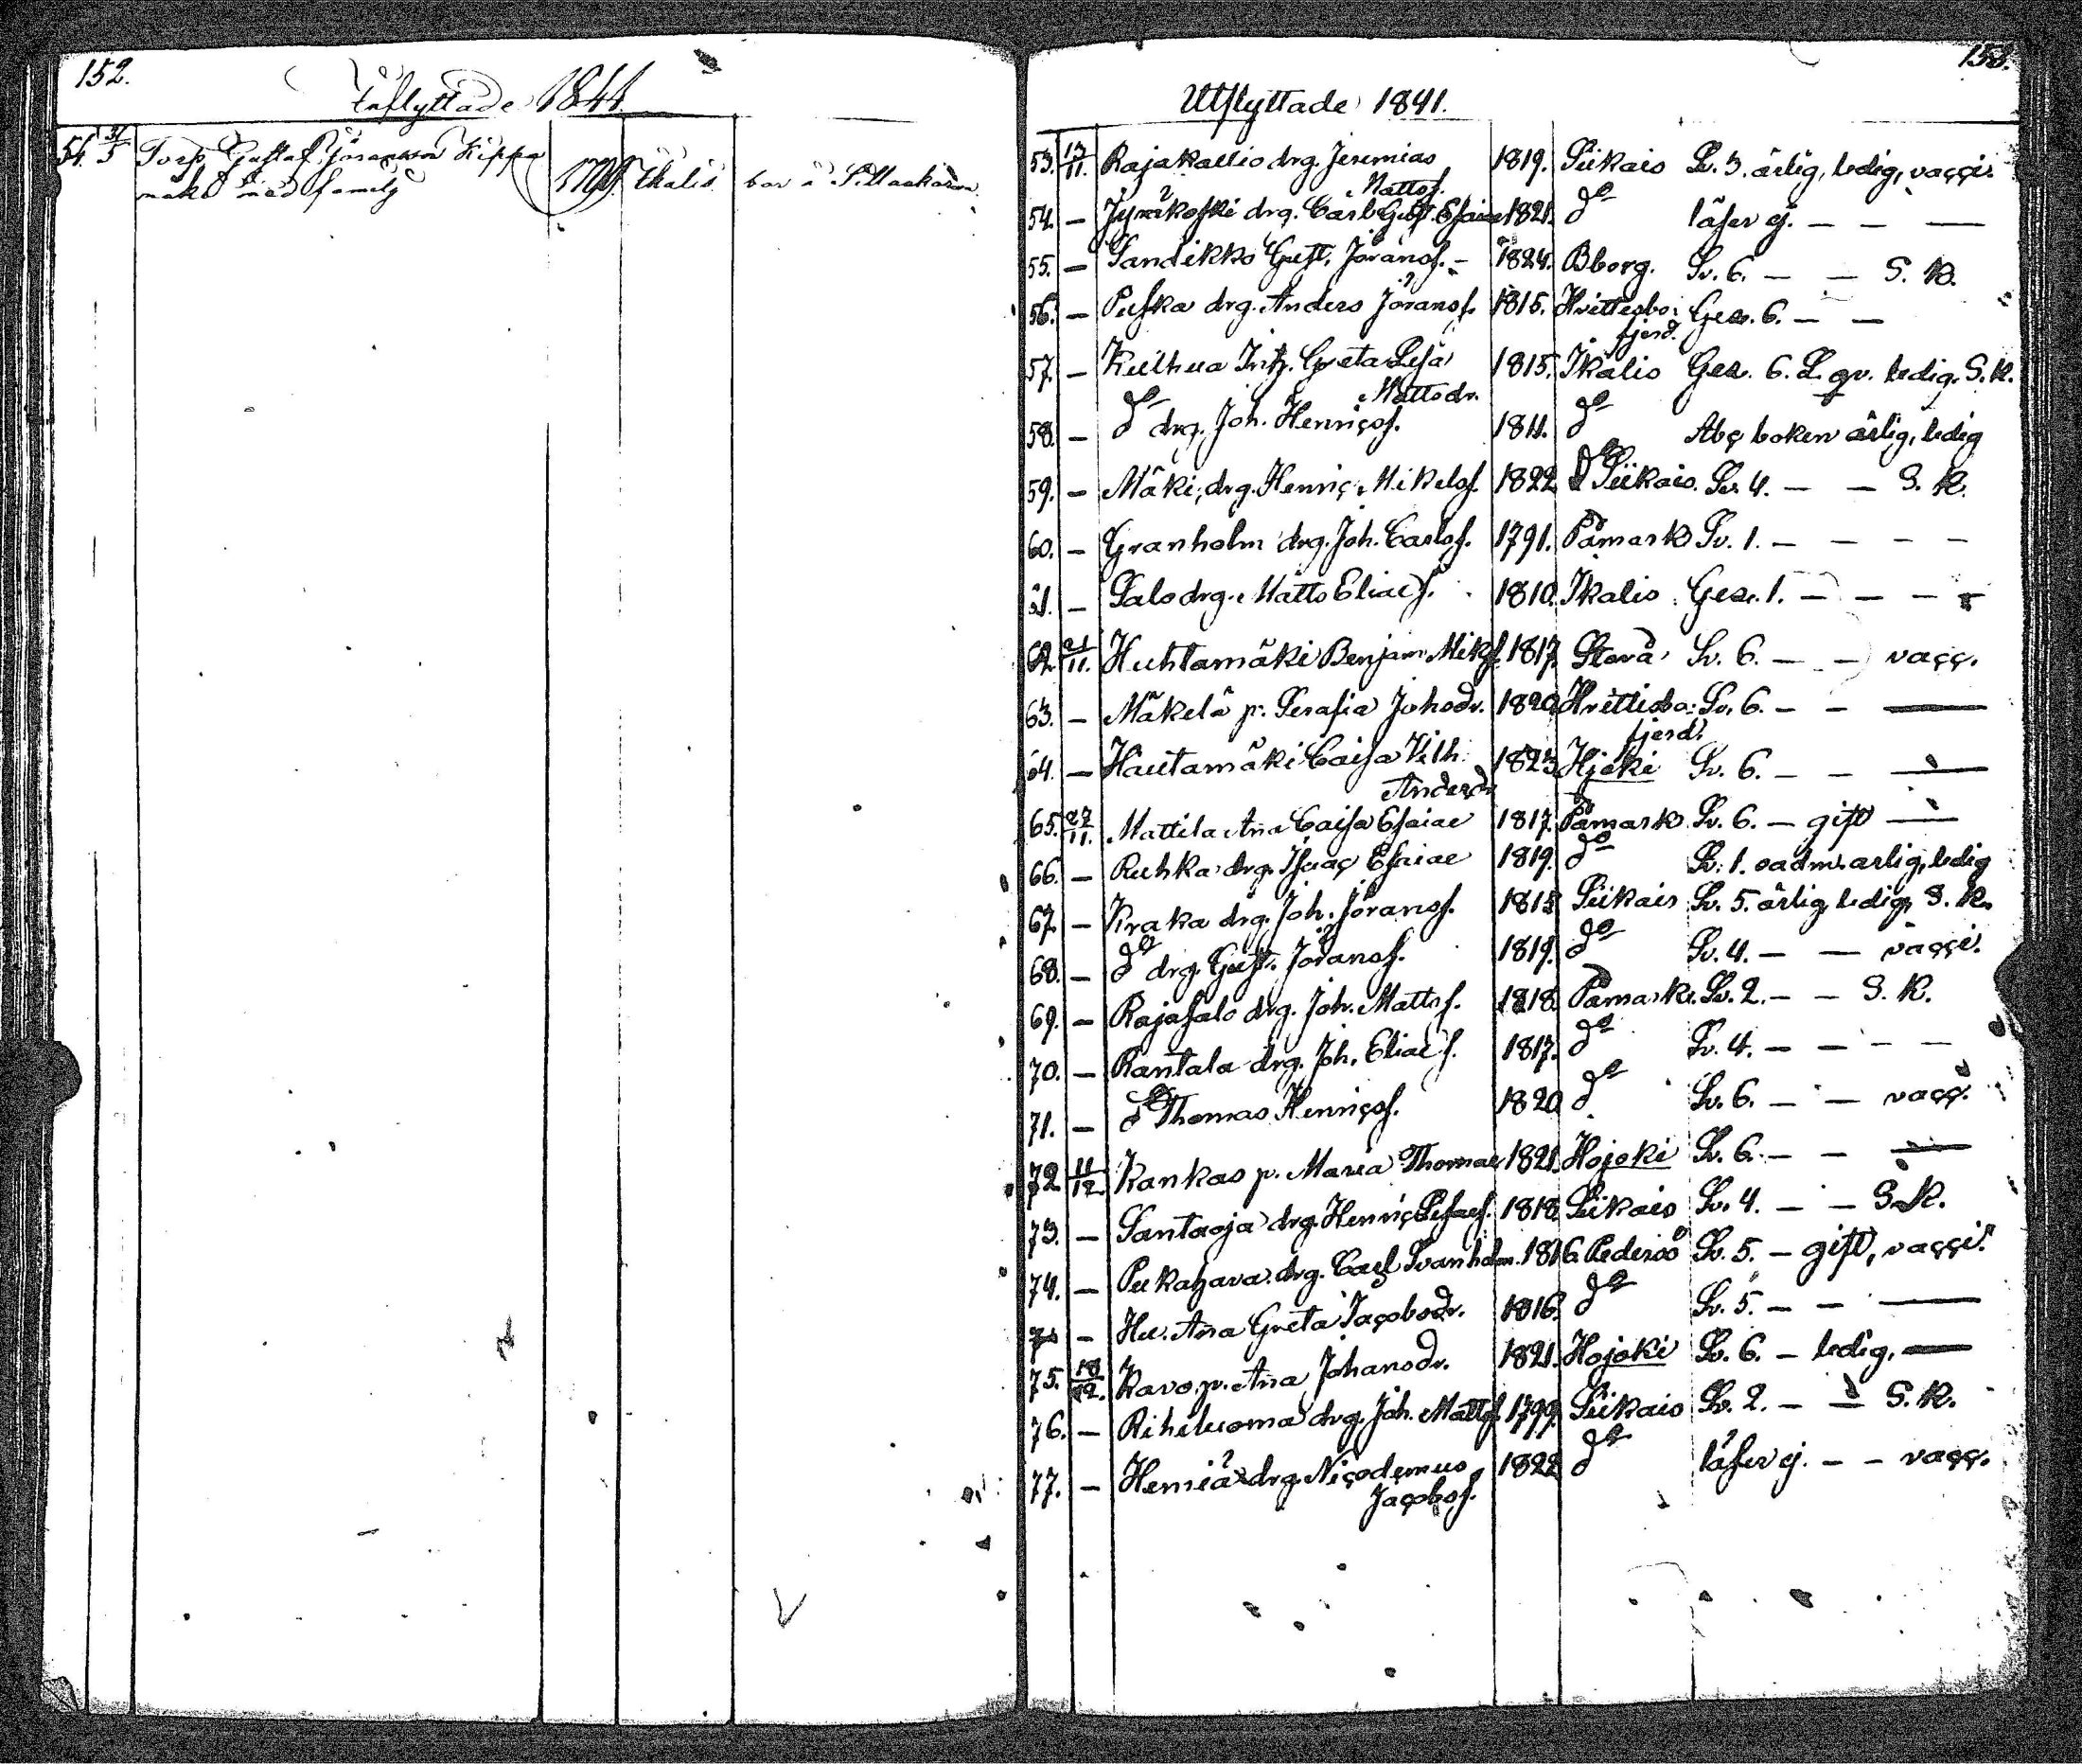 152.
Inflyttade 1841.
54. 31/5 Torp. Gustaf Jöransson Kippa 1799. Ikalis. bor i
makt med familj
153.
Utflyttade 1841.
53. 13/11. Rajakallio drg. Jeremias 1819. Siikais Sv. 3. ärlig, ledig, vacci.
Mattsf.
54. — Jyräkoski drg. Carl Gust. Esaiae 1821. do läser ej. — — —
55. — Sandikko Gust. Jöransf. — 1824. Bborg. Sv. 6. — — S. K.
56. — Puska drg. Anders Jöransf. 1815. Hvittesbo: Ges. 6. — —
fjerd.
57. — Kuihua Inh. Greta Lisa 1815. Ikalis Ges. 6. L. qv. ledig. S. K.
Mattsdr.
58. — do drg. Joh. Henricsf. 1811. do Abc boken ärlig, ledig
59. — Mäki, drg. Henric Mikelsf. 1822 Siikais. Sv. 4. — — S. K.
60. — Granholm drg. Joh. Carlsf. 1791. Påmark Sv. 1. — — — —
61. — Salo drg. Matts Eliaef. 1810. Ikalis Ges. 1. — — — —
62. 21/11. Huhtamäki Benjam. Mikf. 1817. Storå Sv. 6. — — vacc.
63. — Mäkelä p. Serafia Johsdr. 1820 Hvittisbo: Sv. 6. — — —
fjerd.
64. — Hautamäki Caisa Vilh. 1823 Hjoki Sv. 6. — — —
Andersdr
65. 27/11. Mattila Aña Caisa Esaiae 1817. Påmark Sv. 6. — gift —
66. — Ruhka drg. Isaac Esaiae 1819. do Sv. 1. oadm. ärlig, ledig
67. — Kraka drg. Joh. Jöransf. 1815 Siikais Sv. 5. ärlig, ledig, S. K.
68. — do drg. Gust. Jöransf. 1819. do Sv. 4. — — vacci.
69. — Rajasalo drg. Joh. Mattsf. 1818. Påmark. Sv. 2. — — S. K.
70. — Rantala drg. Joh. Eliaef. 1817. do Sv. 4. — — — —
71. — do Thomas Henricsf. 1820 do Sv. 6. — — vacc.
72. 11/12. Kankas p. Maria Thomae 1821. Hojoki Sv. 6. — — —
73. — Santaoja drg. Henric 1818 Siikais Sv. 4. — — S. K.
74. — Pukahava drg. Carl Svanholm. 1816. Pedersö Sv. 5. — gift, vacci.
— Hu. Aña Greta Jacobsdr. 1816. do Sv. 5. — — —
75. 18/12. Kavo p. Aña Johansdr. 1821. Hojoki Sv. 6. — ledig. —
76. — Riihiluoma drg. Joh. Mattsf. 1799. Siikais Sv. 2. — — S. K.
77. — Hemiä drg. Nicodemus 1822 do läser ej. — — vacc.
Jacobsf.